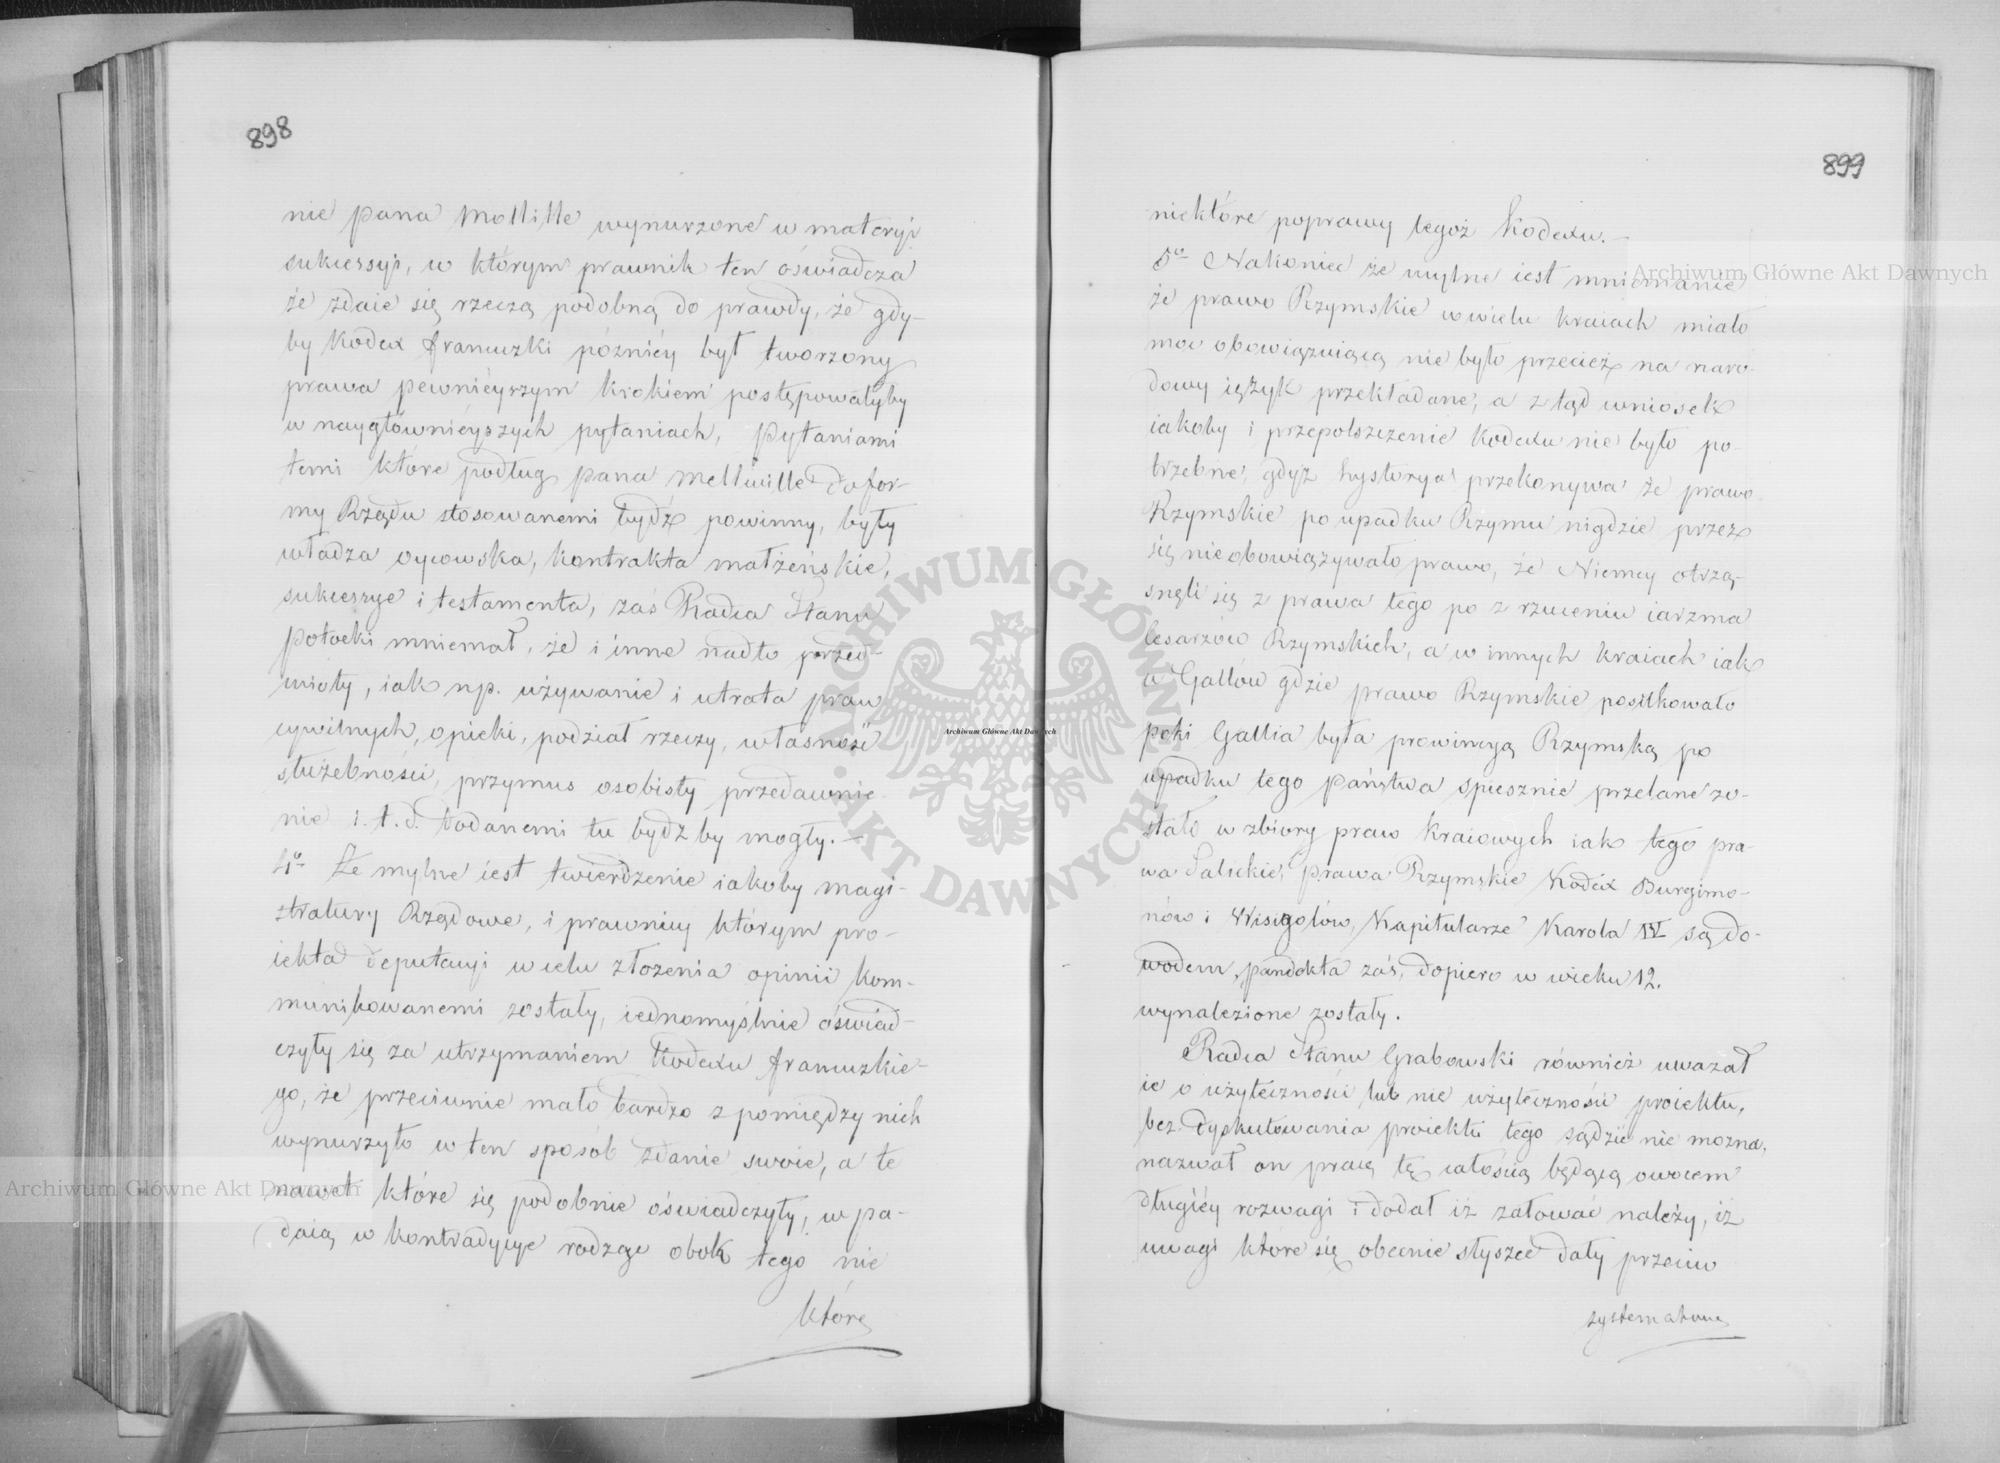 898
nie pana Mollille wynurzone w materyi
sukcessyi, w którym prawnik ten oświadcza
że zdaie się rzeczą podobną do prawdy, że gdy-
by Kodex francuzki późniéy był tworzony
prawa pewniéyszym krokiem postępowałyby
w naygłównieyszych pytaniach, Pytaniami
temi które podług pana Mellville do for-
my Rządu stosowanemi bydź powinny, były
władza oycowska, kontrakta małżeńskie,
sukcessye i testamenta, zaś Radca Stanu
Potocki mniemał, że i inne nadto przed-
mioty, iak np. używanie i utrata praw
cywilnych, opieki, podział rzeczy, własność
służebności, przymus osobisty przedawnie-
nie i.t.d. dodanemi tu bydź by mogły. –
4o Że mylne iest twierdzenie iakoby magi-
stratury Rządowe, i prawnicy którym pro-
iekta deputacyi w celu złożenia opinii kom-
munikowanemi zostały, iednomyślnie oświad-
czyły się za utrzymaniem Kodexu francuzkie-
go, że przeciwnie mało bardzo z pomiędzy nich
wynurzyło w ten sposób zdanie swoie, a te
nawet które się podobnie oświadczyły, wpa-
daią w kontradykcye rodzące obok tego nie
które
899
niektóre poprawy tegoż Kodexu. –
5o Nakoniec że mylne iest mniemanie
że prawo Rzymskie w wielu kraiach miało
moc obowiązuiącą nie było przecież na naro-
dowy ięzyk przekładane, a ztąd wniosek
iakoby i przepolszczenie Kodexu nie było po-
trzebne, gdyż hystorya przekonywa że prawo
Rzymskie po upadku Rzymu nigdzie przez
się nie obowiązywało prawo, że Niemcy otrzą-
snęli się z prawa tego po zrzuceniu iarzma
Cesarzów Rzymskich, a w innych kraiach iak
u Gallów gdzie prawo Rzymskie posiłkowało
póki Gallia była prowincyą Rzymską po
upadku tego Państwa spiesznie przelane zo-
stało w zbiory praw kraiowych iak tego pra-
wa Salickie, Prawa Rzymskie Kodex Burgino-
nów i Wisigotów, Kapitularze Karola IV są do-
wodem, pandekta zaś, dopiero w wieku 12.
wynalezione zostały.
Radca Stanu Grabowski również uważał
iż o użyteczności lub nie użyteczności proiektu,
bez dyskutowania proiektu tego sądzić nie można,
nazwał on pracę tę całością będącą owocem
długiéy rozwagi i dodał iż żałować należy, iż
uwagi które się obecnie słyszeć dały przeciw
systematowi
Archiwum Główne Akt Dawnych
Archiwum Główne Akt Dawnych
Archiwum Główne Akt Dawnych
ARCHIWUM GŁÓWNE AKT DAWNYCH